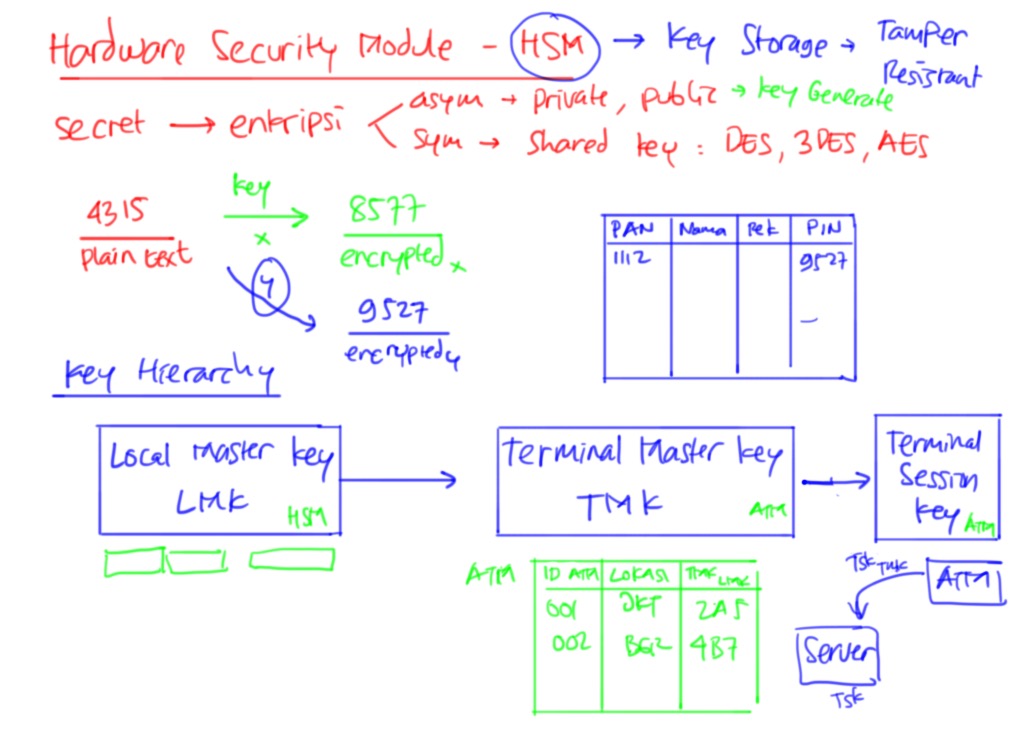 Hardware Security Module - HSM → Key Storage → Tamper Resistant
secret → enkripsi
asym → private, public → Key Generate
sym → Shared key : DES, 3DES, AES
4315
plain text
key
x
8577
encrypted x
y
9527
encrypted y
PAN Nama Rek PIN
1112 9527
Key Hierarchy
Local Master Key
LMK
HSM
Terminal Master Key
TMK
ATM
Terminal
Session
Key ATM
ATM
ID ATM LOKASI TMK LMK
001 JKT 2A5
002 BGR 4B7
TSK TMK
ATM
Server
TSK